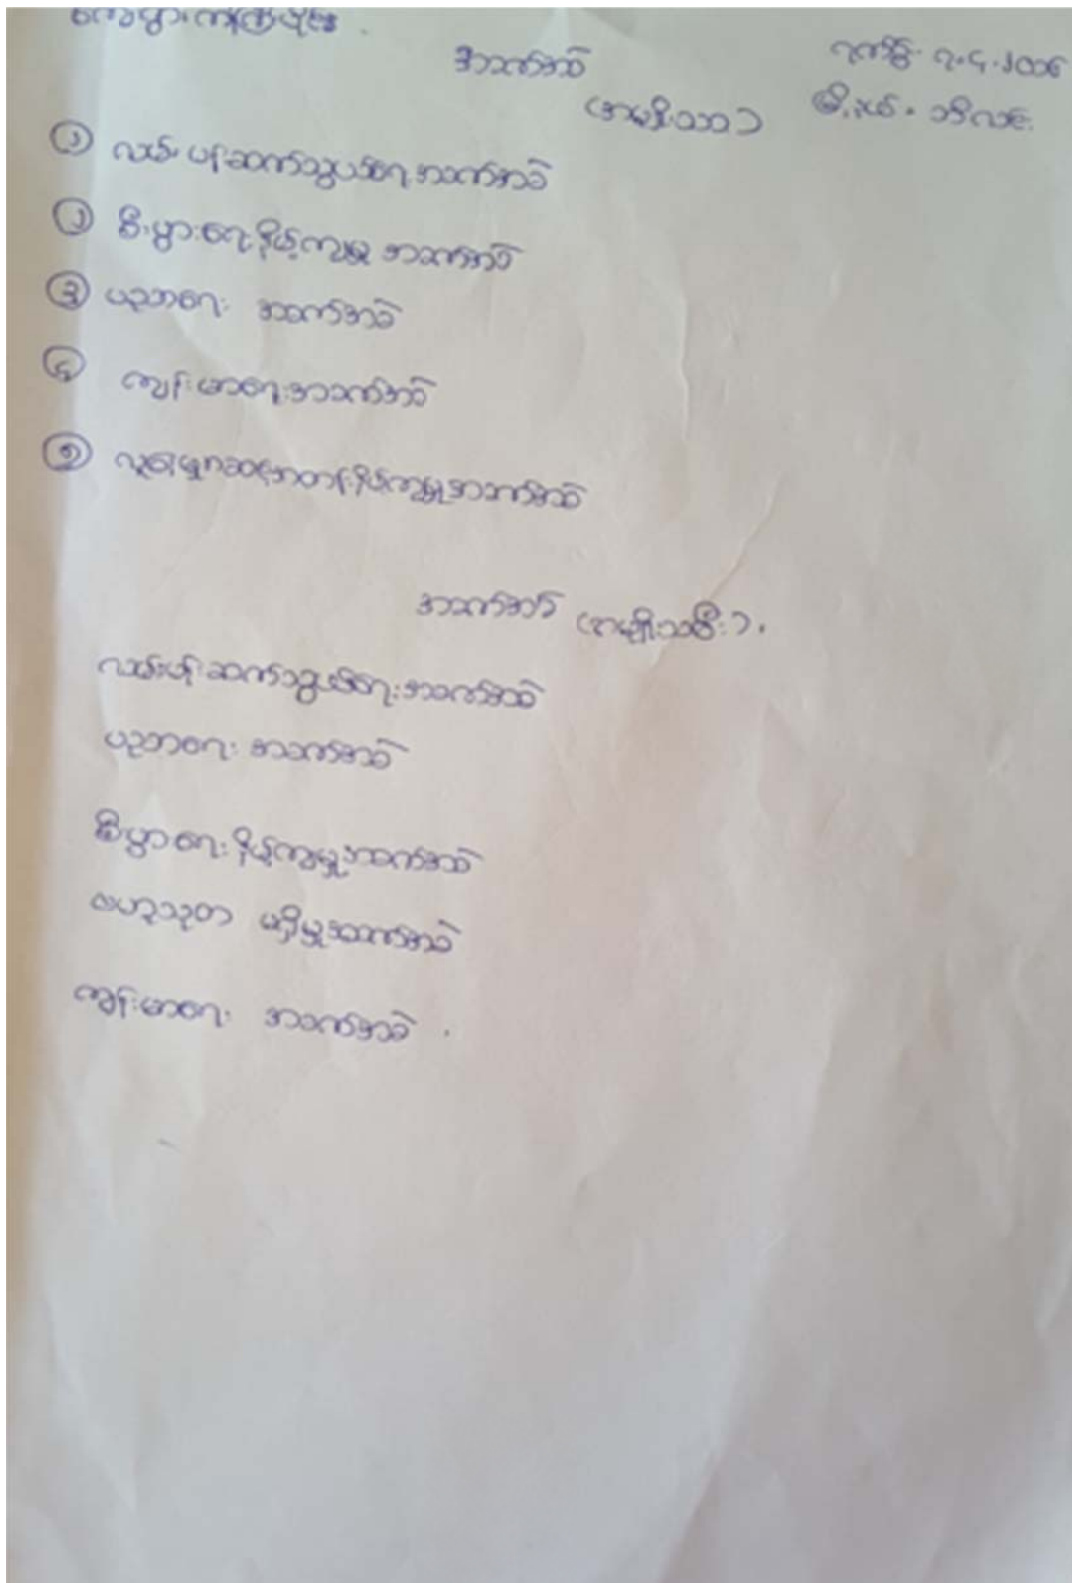 ကျေးရွာ
အခက်အခဲ
ရက်စွဲ - ၇.၄.၂၀၁၆
(အမျိုးသား)
မြို့နယ် - ဘီးလင်း
၁ လမ်းပန်းဆက်သွယ်ရေး အခက်အခဲ
၂ စီးပွားရေးနိမ့်ကျမှု အခက်အခဲ
၃ ပညာရေး အခက်အခဲ
၄ ကျန်းမာရေးအခက်အခဲ
၅ လူနေမှုအဆင့်အတန်းနိမ့်ကျမှုအခက်အခဲ
အခက်အခဲ (အမျိုးသမီး)
လမ်းပန်းဆက်သွယ်ရေးအခက်အခဲ
ပညာရေး အခက်အခဲ
စီးပွားရေးနိမ့်ကျမှုအခက်အခဲ
ဗဟုသုတ မရှိမှုအခက်အခဲ
ကျန်းမာရေး အခက်အခဲ